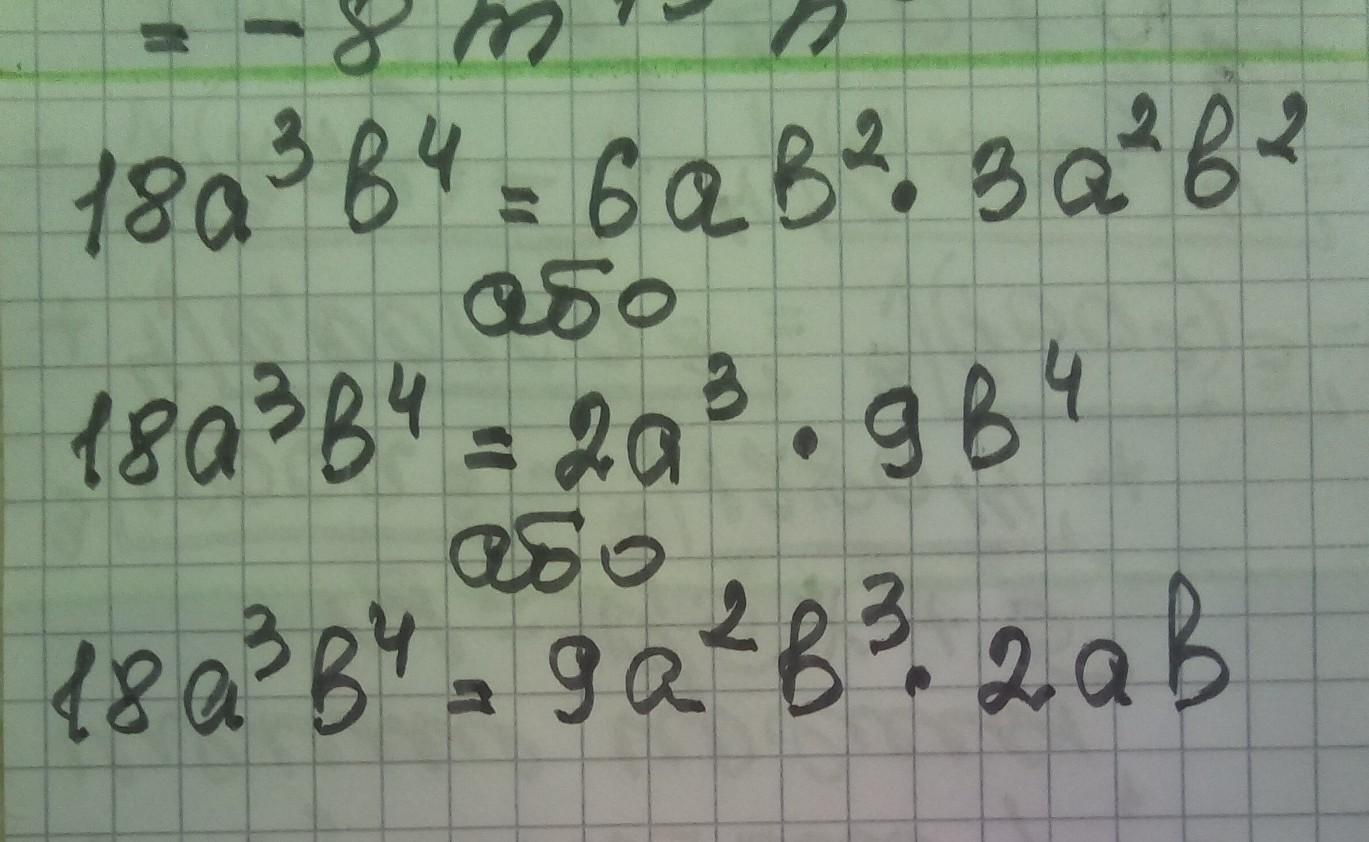 18a³b⁴ = 6ab² · 3a²b²
або
18a³b⁴ = 2a³ · 9b⁴
або
18a³b⁴ = 9a²b³ · 2ab